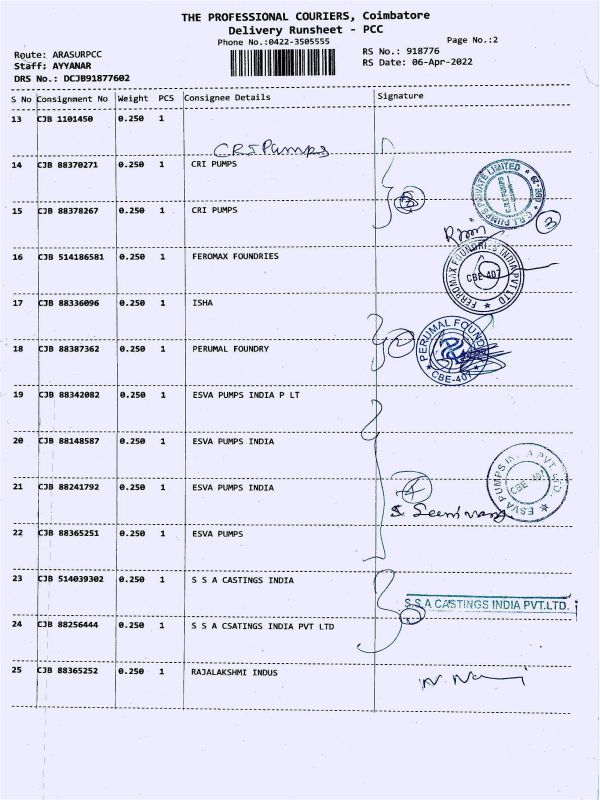 THE PROFESSIONAL COURIERS, Coimbatore
Delivery Runsheet - PCC
Phone No.:0422-3505555
Page No.:2
Route: ARASURPCC
RS No.: 918776
Staff: AYYANAR
RS Date: 06-Apr-2022
DRS No.: DCJB91877602
S No Consignment No Weight PCS Consignee Details Signature
13 CJB 1101450 0.250 1
CRI Pumps
14 CJB 88370271 0.250 1 CRI PUMPS
15 CJB 88378267 0.250 1 CRI PUMPS
3
C.R.I. PUMPS PRIVATE LIMITED
3
16 CJB 514186581 0.250 1 FEROMAX FOUNDRIES
FERROMAX FOUNDRIES INDIA PVT LTD
CBE-407
17 CJB 88336096 0.250 1 ISHA
18 CJB 88387362 0.250 1 PERUMAL FOUNDRY
2
PERUMAL FOUND
CBE-407
19 CJB 88342082 0.250 1 ESVA PUMPS INDIA P LT
20 CJB 88148587 0.250 1 ESVA PUMPS INDIA
21 CJB 88241792 0.250 1 ESVA PUMPS INDIA
4
ESVA PUMPS IN A PVT LTD.
CBE-407
22 CJB 88365251 0.250 1 ESVA PUMPS
23 CJB 514039302 0.250 1 S S A CASTINGS INDIA
S S A CASTINGS INDIA PVT.LTD.
24 CJB 88256444 0.250 1 S S A CSATINGS INDIA PVT LTD
25 CJB 88365252 0.250 1 RAJALAKSHMI INDUS